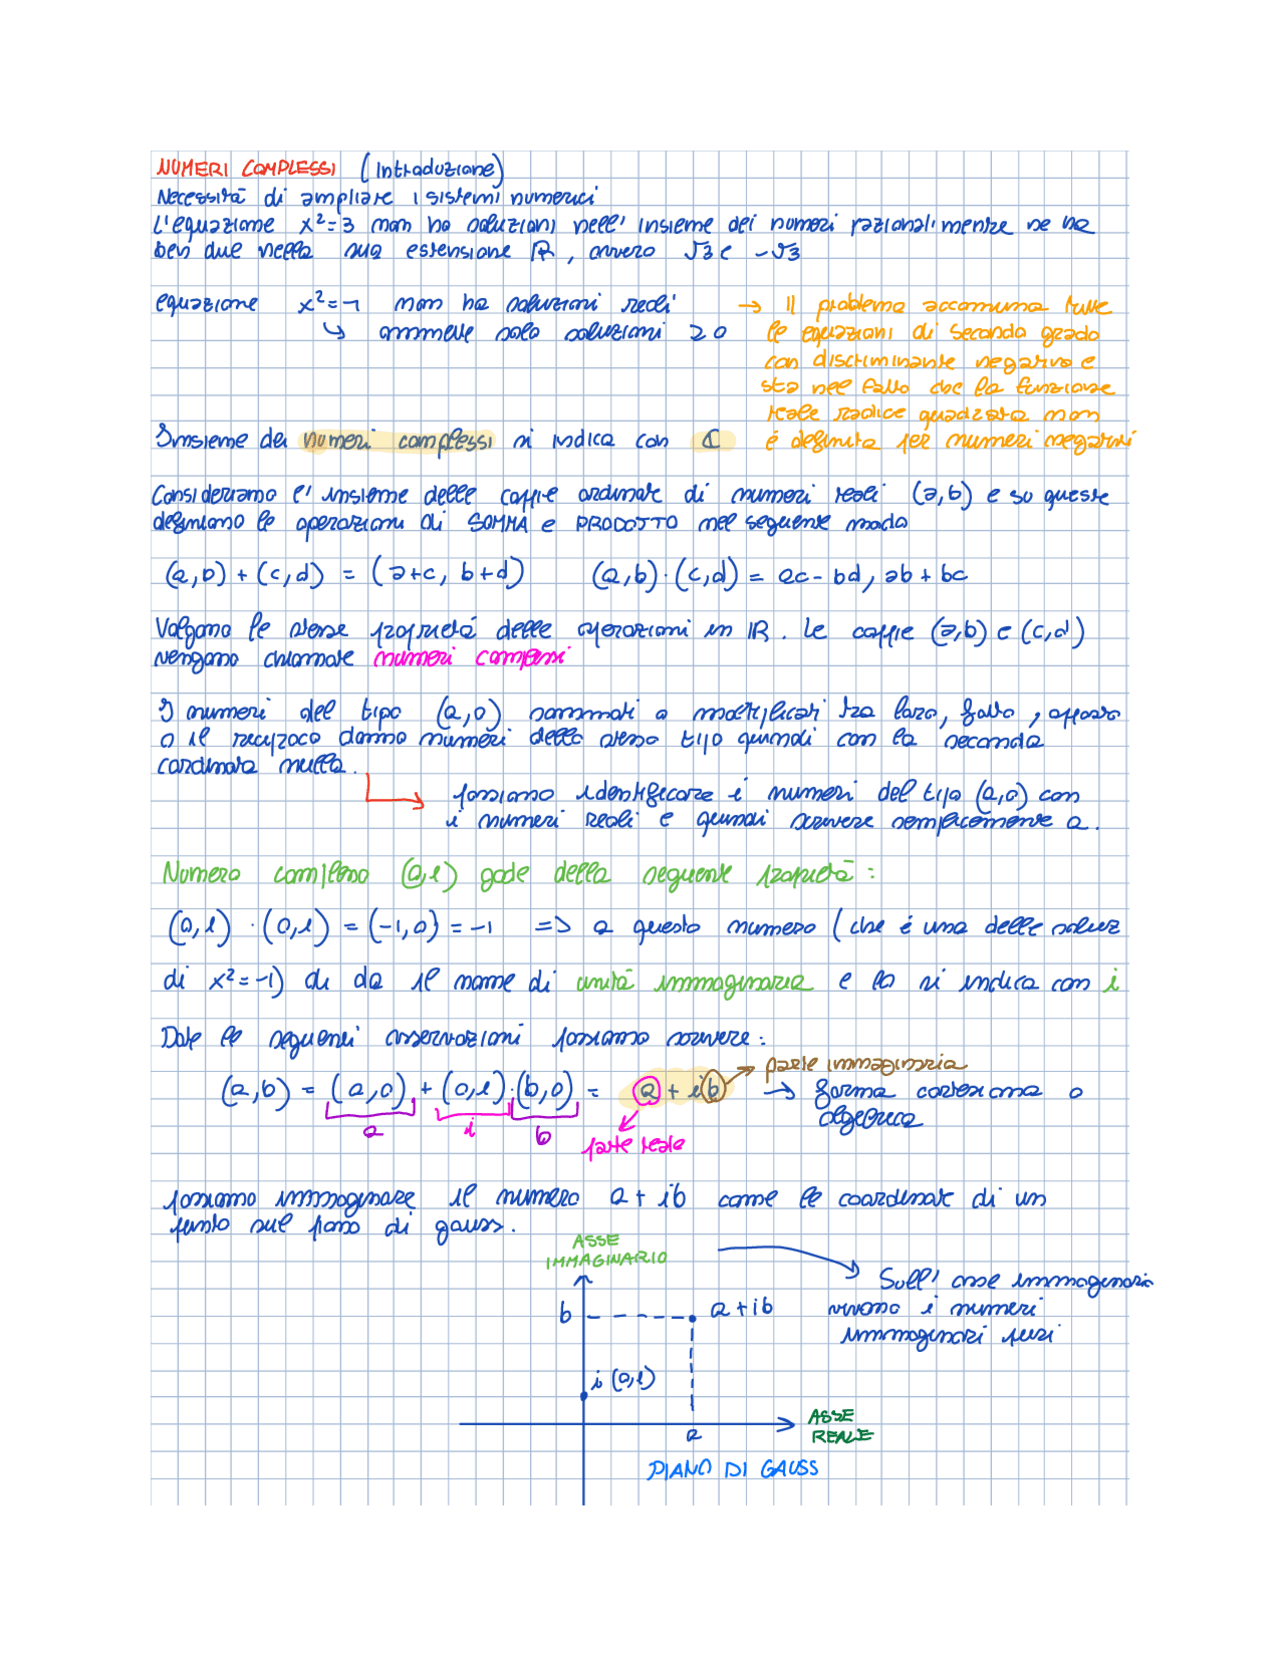 NUMERI COMPLESSI (Introduzione)
Necessità di ampliare i sistemi numerici
L'equazione x²=3 non ha soluzioni nell' insieme dei numeri razionali mentre ne ha
ben due nella sua estensione ℝ, ovvero √3 e -√3
equazione x²=-1 non ha soluzioni reali
↳ ammette solo soluzioni ≥0
→ Il problema accomuna tutte
le equazioni di secondo grado
con discriminante negativo e
sta nel fatto che la funzione
reale radice quadrata non
è definita per numeri negativi
Insieme dei numeri complessi si indica con ℂ
Consideriamo l' insieme delle coppie ordinate di numeri reali (a,b) e su queste
definiamo le operazioni di SOMMA e PRODOTTO nel seguente modo
(a,b)+(c,d) = (a+c, b+d) (a,b)·(c,d) = ac-bd, ab+bc
Valgono le stesse proprietà delle operazioni in ℝ. Le coppie (a,b) e (c,d)
vengono chiamate numeri complessi
I numeri del tipo (a,0) sommati o moltiplicati tra loro, fatto, opposto
o il reciproco danno numeri dello stesso tipo quindi con la seconda
coordinata nulla.
possiamo identificare i numeri del tipo (a,0) con
i numeri reali e quindi scrivere semplicemente a.
Numero complesso (0,1) gode della seguente proprietà:
(0,1)·(0,1) = (-1,0) = -1 => a questo numero (che è una delle soluz
di x²=-1) di da il nome di unità immaginaria e lo si indica con i
Date le seguenti osservazioni possiamo scrivere:
(a,b) = (a,0)+(0,1)·(b,0) = a+ib → forma cartesiana o
algebrica
parte immaginaria
a i b
parte reale
possiamo immaginare il numero a+ib come le coordinate di un
punto sul piano di gauss.
ASSE
IMMAGINARIO
Sull' asse immaginario
vivono i numeri
immaginari puri
b
a+ib
i (0,1)
a
ASSE
REALE
PIANO DI GAUSS